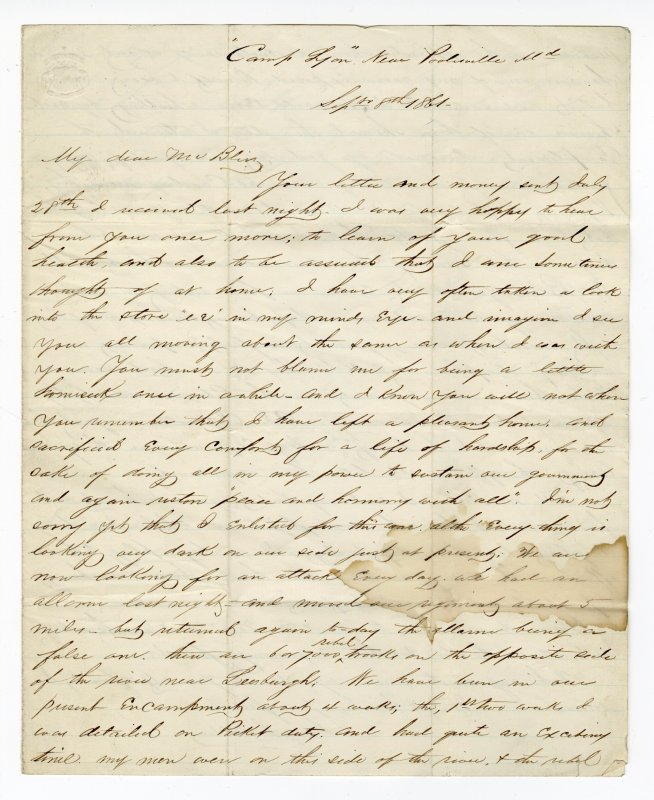 "Camp Lyon" Near Poolesville Md
Sept 8th 1861-
My dear Mr Bliss
Your letter and money sent July
28th I received last night. I was very happy to hear
from you once more; to learn of your good
health, and also to be assured that I am sometimes
thought of at home. I have very often taken a look
into the store in my minds Eye - and imagine I see
you all moving about the same as when I was with
you. You must not blame me for being a little
homesick once in a while - and I know you will not when
you remember that I have left a pleasant home, and
sacrificed Every Comfort for a life of hardship, for the
sake of doing all in my power to sustain our government
and again restore "peace and harmony with all". I'm not
sorry yet that I Enlisted for this war. altho "Every thing is
looking very dark on our side just at present; We are
now looking for an attack Every day. we had an
allarm last night - and moved our regiment about 5
miles - but returned again to-day the allarm being a
false one. there are 6 or 7000 rebel trooks on the opposite side
of the river near Leesburgh. We have been in our
present Encampment about 4 weeks; the, 1st two week I
was detailed on Picket duty, and had quite an Exciting
time my men were on this side of the river, & the rebel